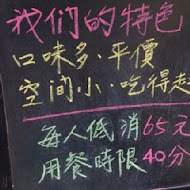 我们的特色
口味多、平價
空间小、吃得走
每人低消65元
用餐時限40分